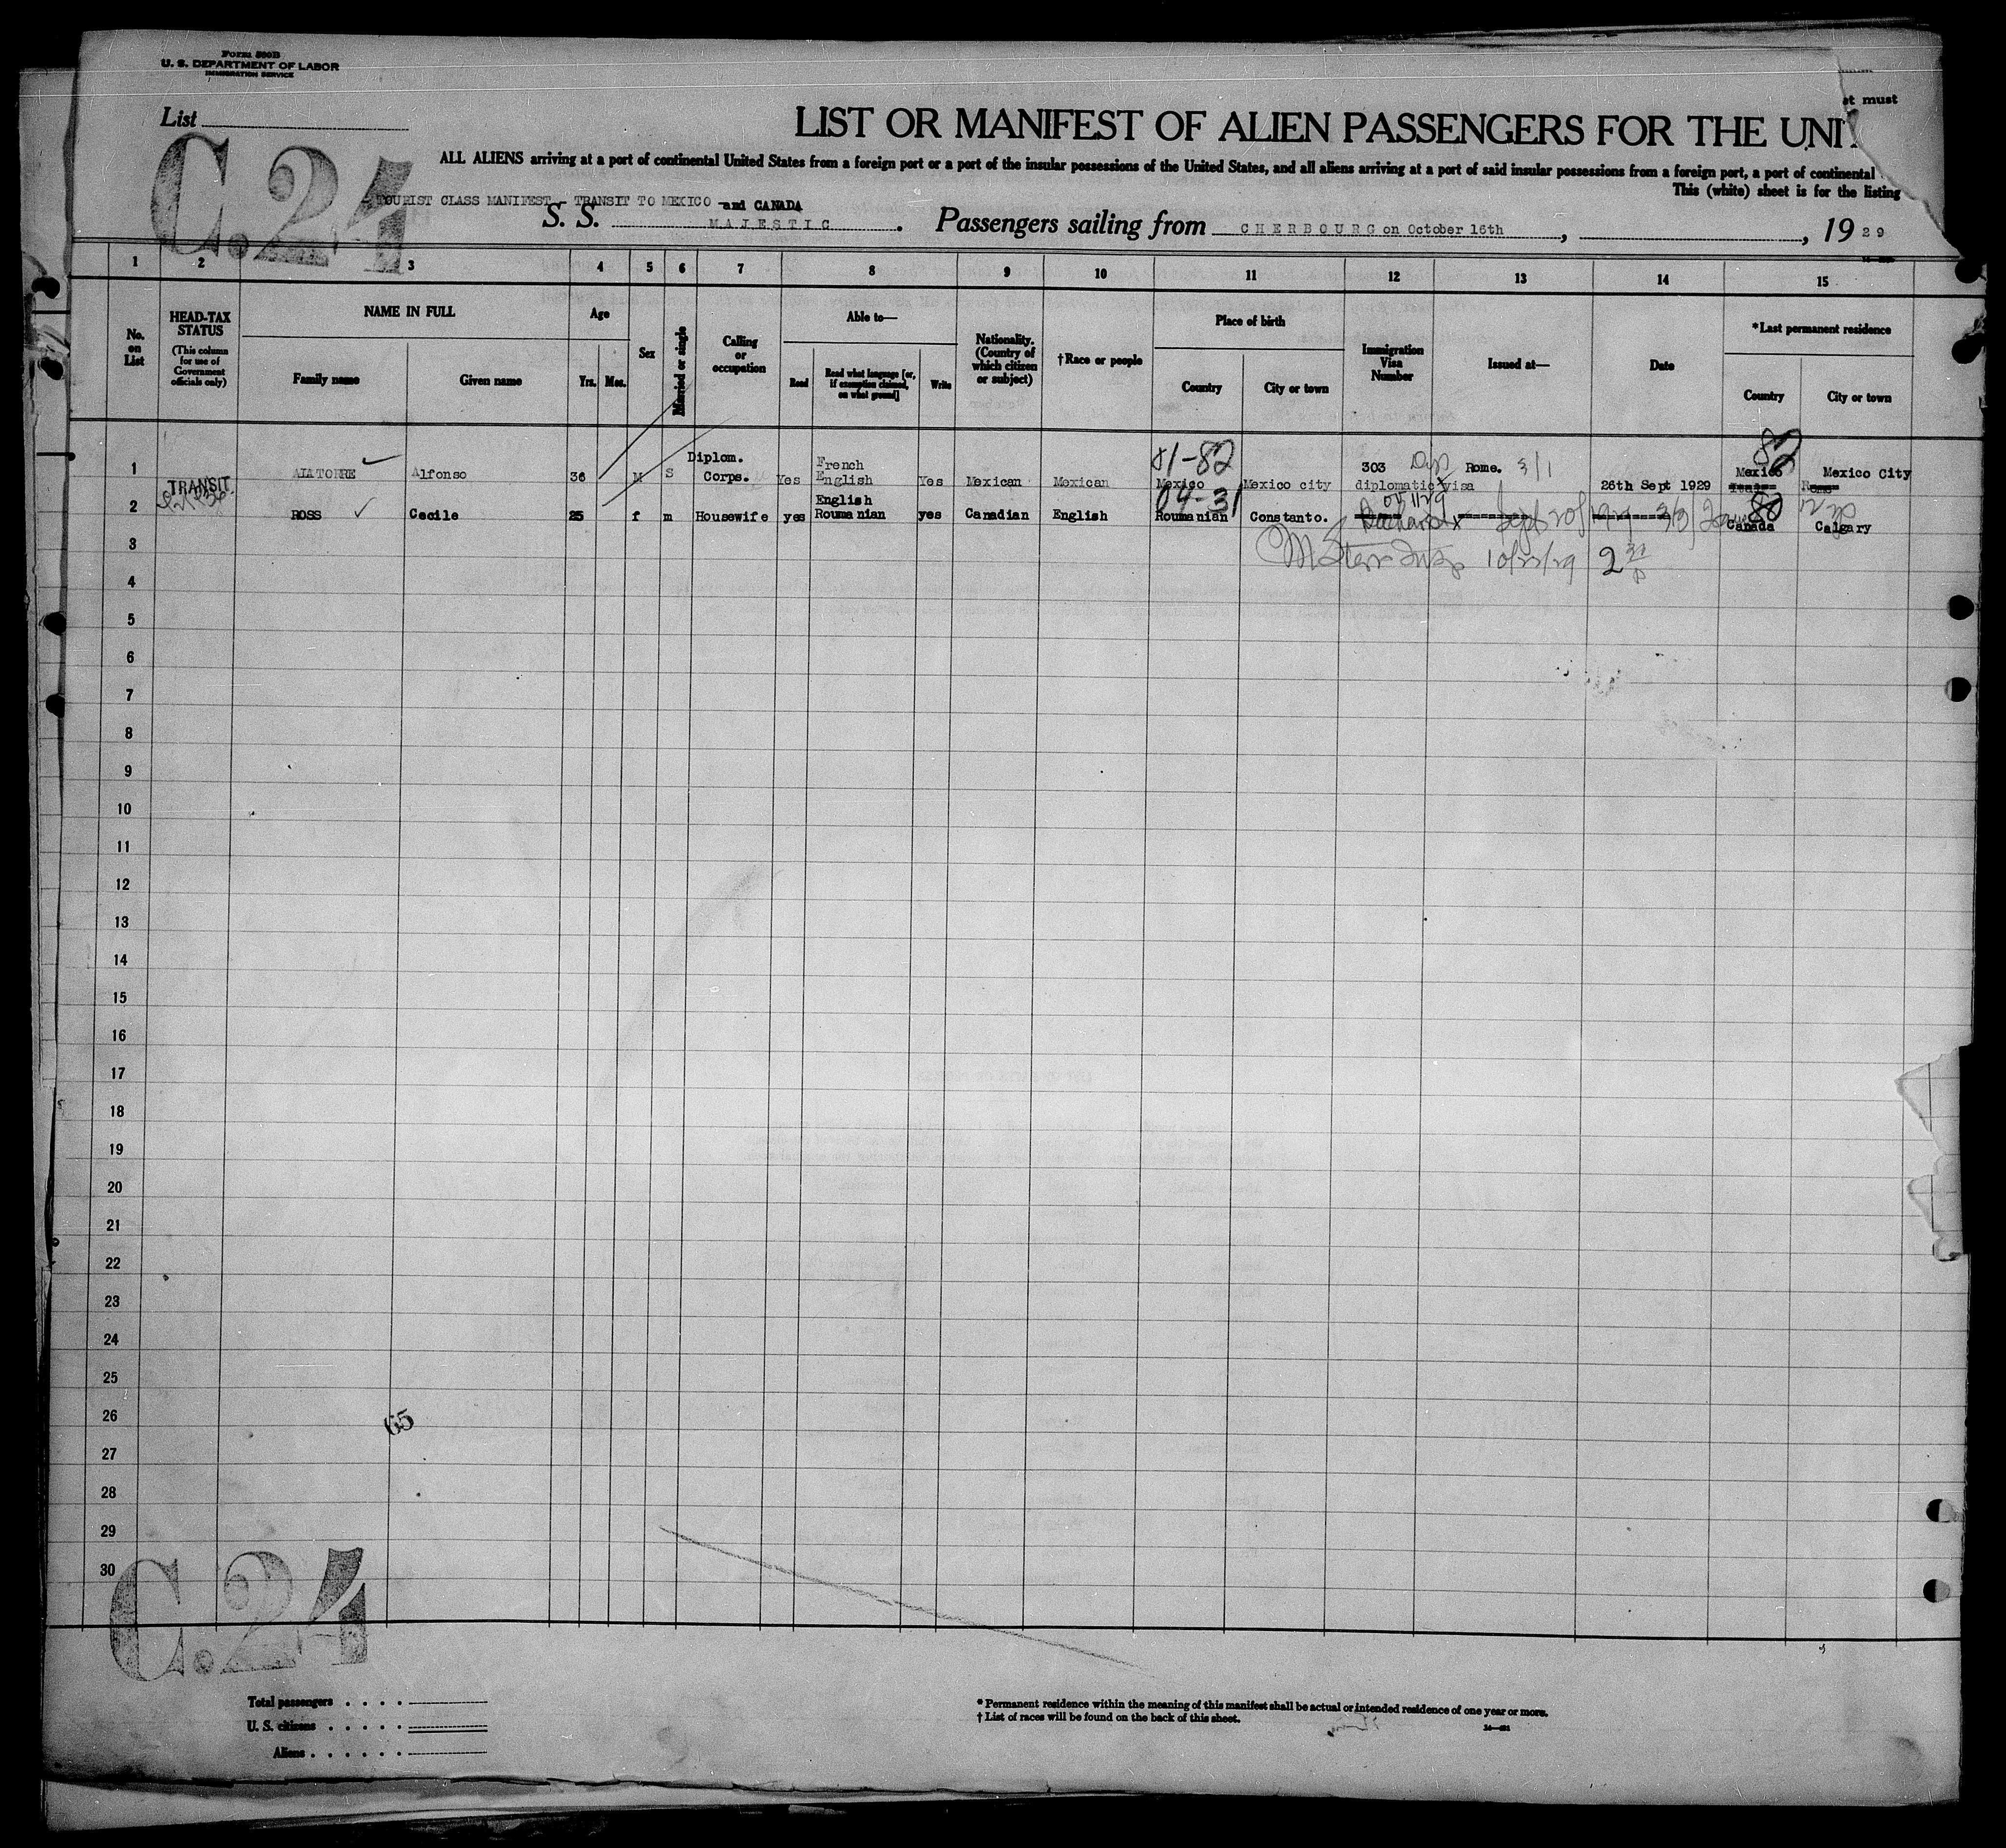 Form 500B
U. S. DEPARTMENT OF LABOR
IMMIGRATION SERVICE
List
C.24
et must
LIST OR MANIFEST OF ALIEN PASSENGERS FOR THE UNI
ALL ALIENS arriving at a port of continental United States from a foreign port or a port of the insular possessions of the United States, and all aliens arriving at a port of said insular possessions from a foreign port, a port of continental
This (white) sheet is for the listing
TOURIST CLASS MANIFEST - TRANSIT TO MEXICO -and CANADA
S. S. MAJESTIC . Passengers sailing from CHERBOURG on October 16th , , 19 29
1 2 3 4 5 6 7 8 9 10 11 12 13 14 15
No. on List
HEAD-TAX STATUS
(This column for use of Government officials only)
NAME IN FULL
Family name Given name
Age
Yrs. Mos.
Sex
Married or single
Calling or occupation
Able to—
Read Read what language [or, if exemption claimed, on what ground] Write
Nationality. (Country of which citizen or subject)
†Race or people
Place of birth
Country City or town
Immigration Visa Number
Issued at—
Date
*Last permanent residence
Country City or town
81-82 82
1 TRANSIT Alfonso 36 M S Diplom. Corps. Yes French English Yes Mexican Mexican Mexico Mexico city 303 Dip diplomatic visa Rome. 3/1 26th Sept 1929 Mexico Mexico City
04-31 80
2 ROSS Cecile 25 f m Housewife yes English Roumanian yes Canadian English Roumanian Constanto. Sept 20/ 3/3/ Canada Calgary
3 10/22/29 2 30/P
4
5
6
7
8
9
10
11
12
13
14
15
16
17
18
19
20
21
22
23
24
25
26
65
27
28
29
30
C.24
Total passengers . . . .
U. S. citizens . . . . .
Aliens . . . . . .
* Permanent residence within the meaning of this manifest shall be actual or intended residence of one year or more.
† List of races will be found on the back of this sheet.